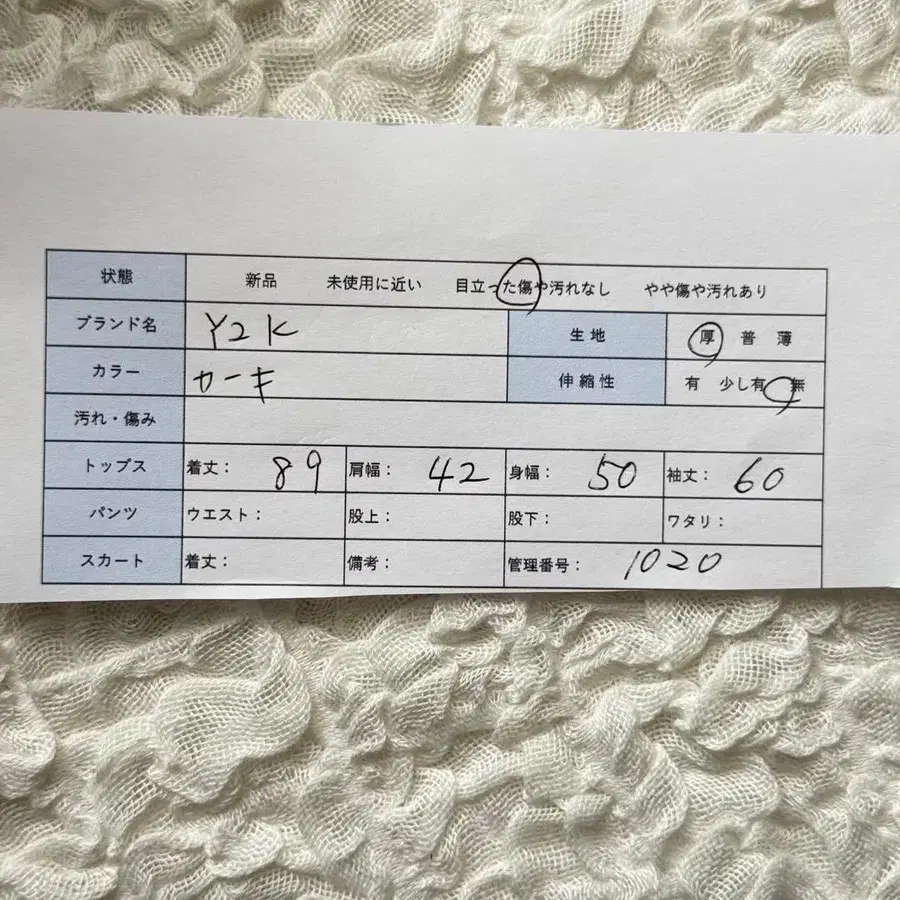 状態 新品 未使用に近い 目立った傷や汚れなし やや傷や汚れあり
ブランド名 Y2K 生地 厚 普 薄
カラー カーキ 伸縮性 有 少し有 無
汚れ・傷み
トップス 着丈： 89 肩幅： 42 身幅： 50 袖丈： 60
パンツ ウエスト： 股上： 股下： ワタリ：
スカート 着丈： 備考： 管理番号： 1020